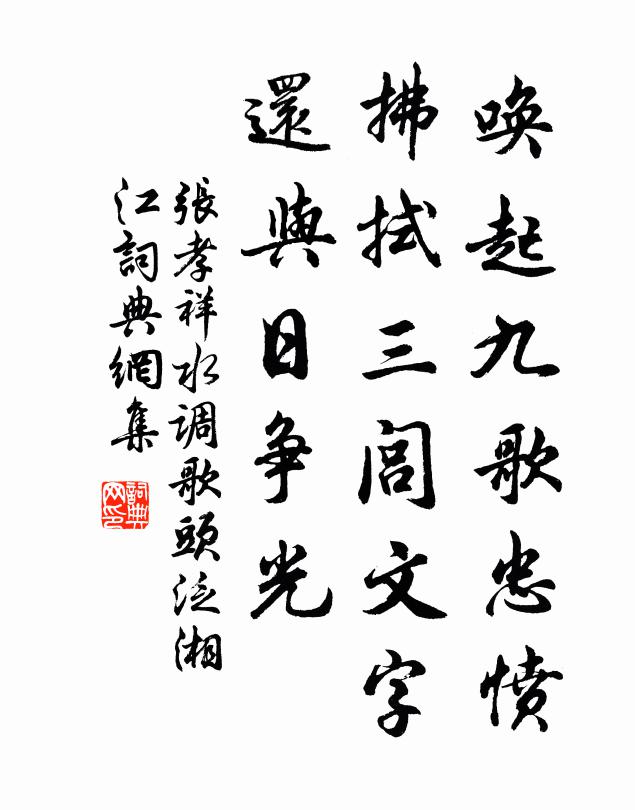 喚起九歌忠憤
拂拭三閭文字
還與日争光
張孝祥水调歌頭泛湘
江詞典網集
詞典
网印